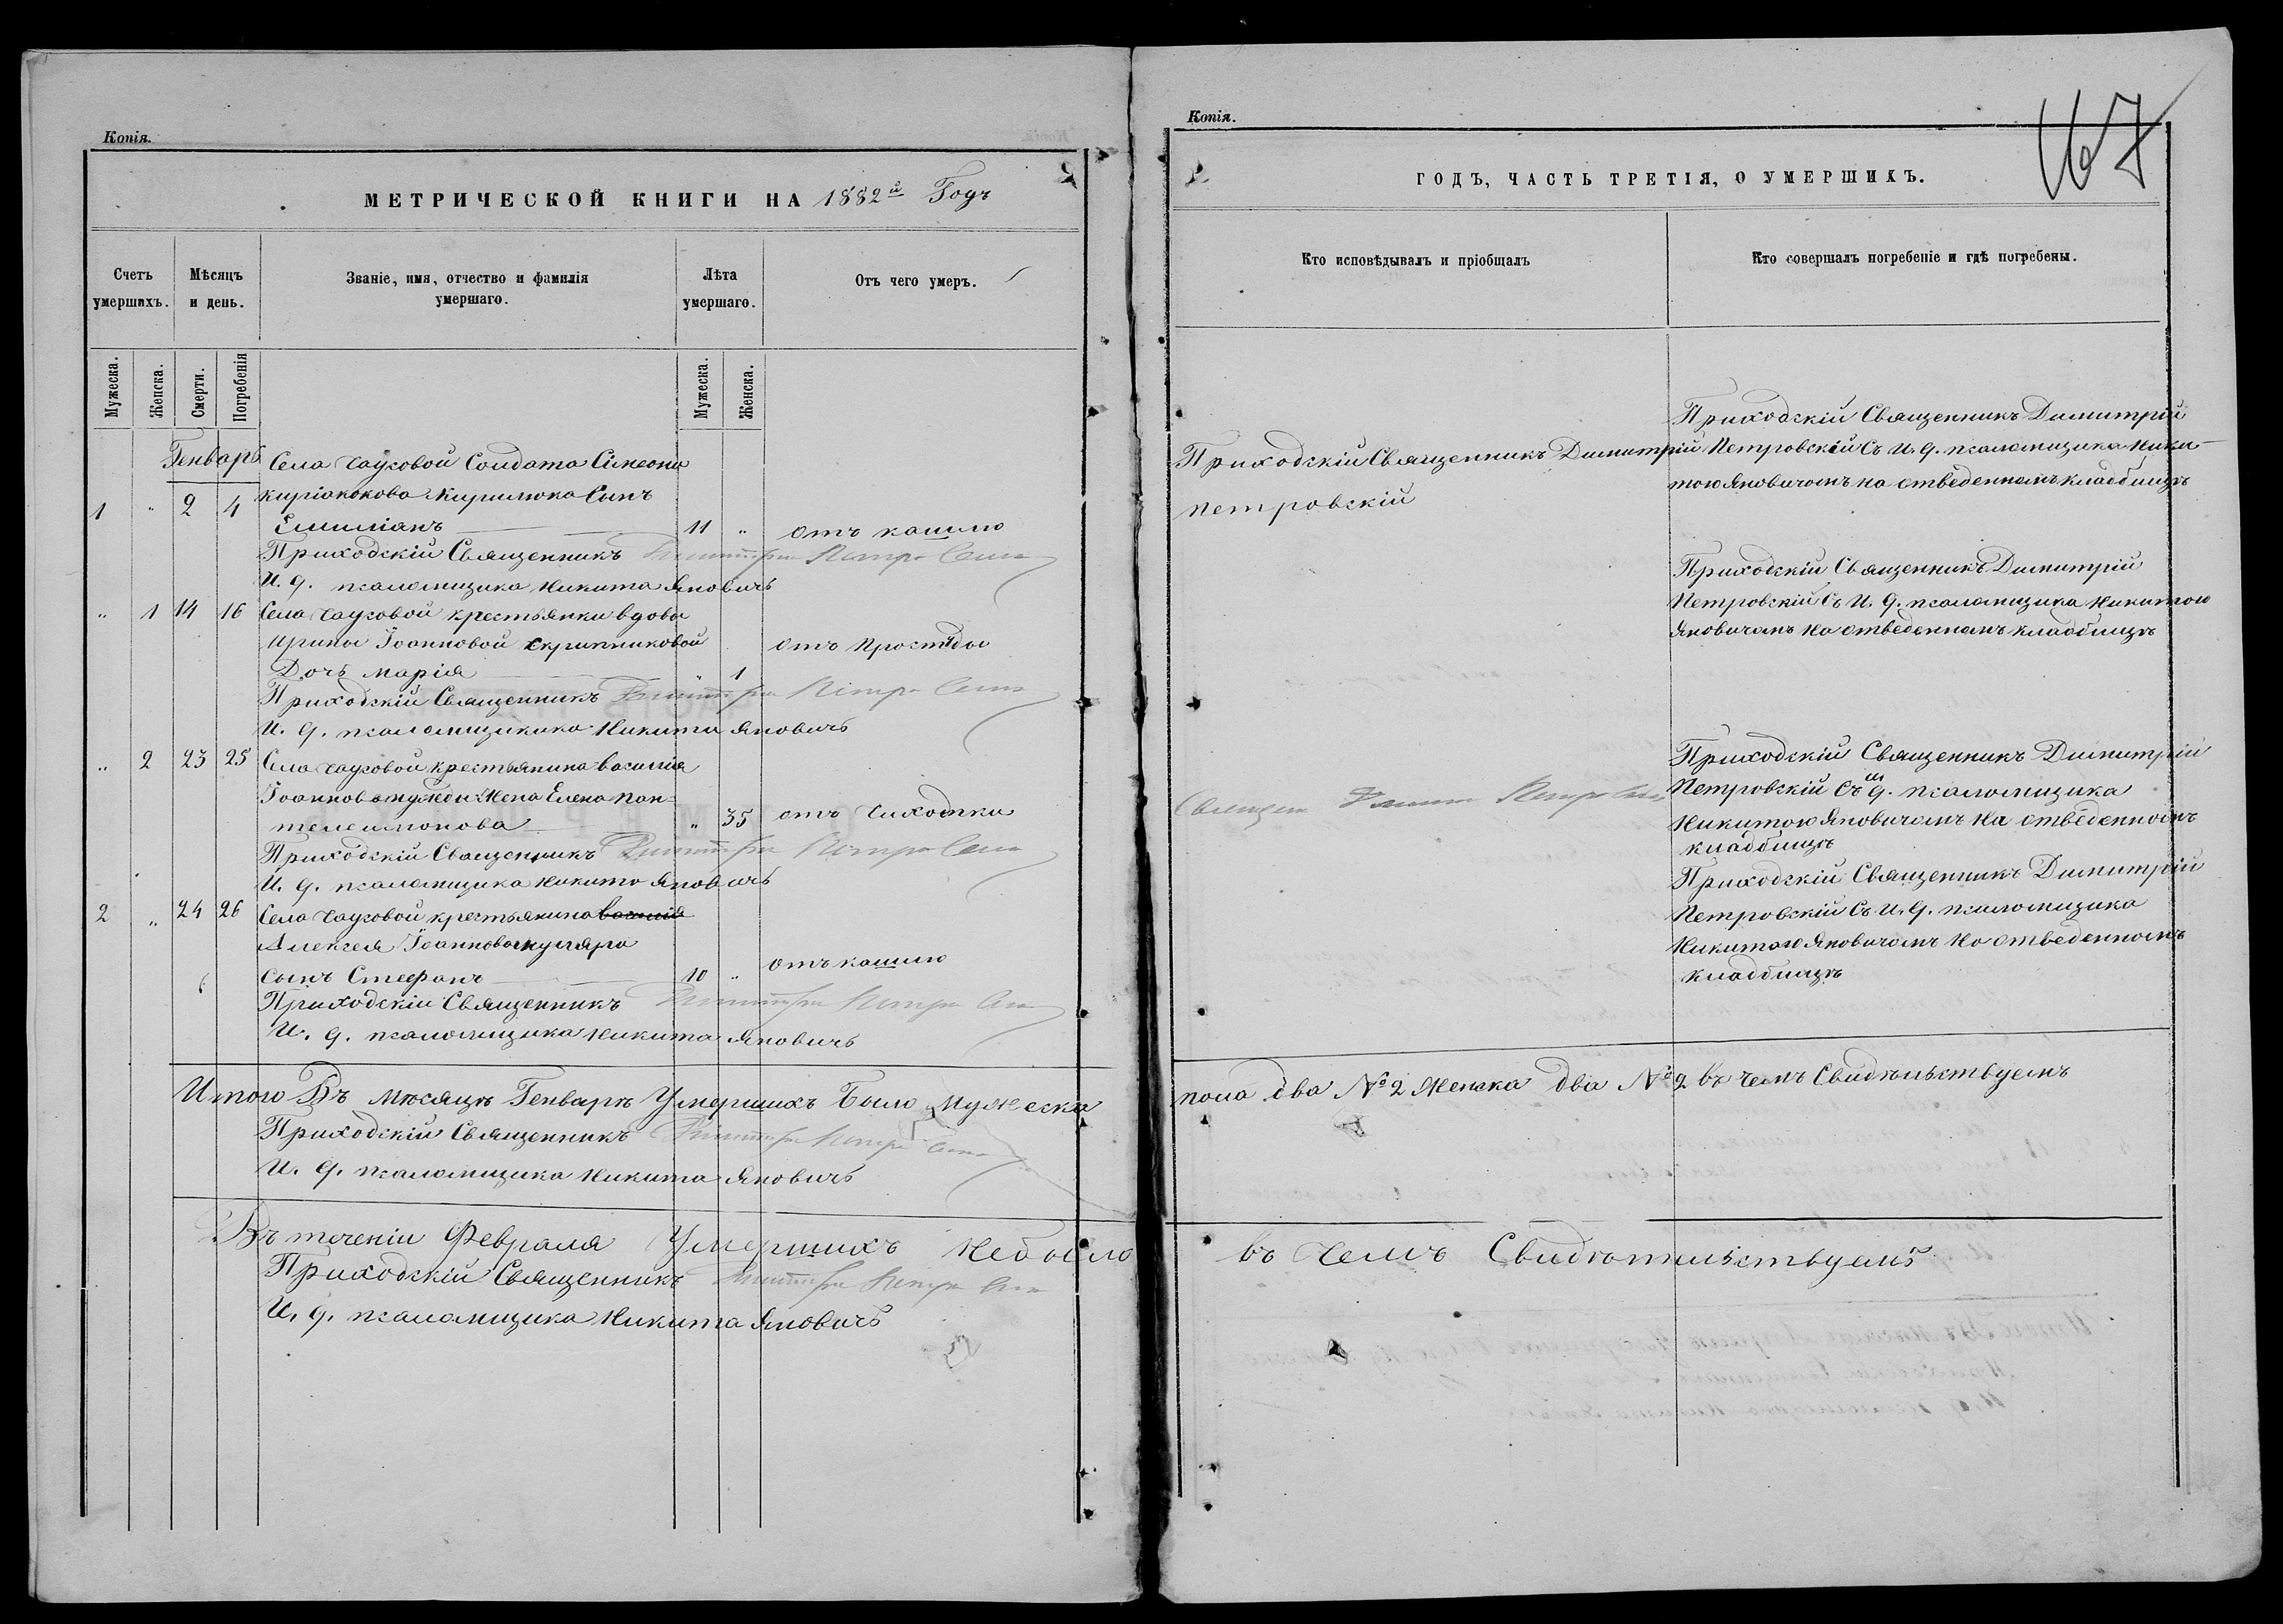 Копія.
МЕТРИЧЕСКОЙ КНИГИ НА 1882й Годъ
Счетъ умершихъ.
Мѣсяцъ и день.
Званіе, имя, отчество и фамилія умершаго.
Лѣта умершаго.
Отъ чего умеръ.
Мужеска.
Женска.
Смерти.
Погребенія
Мужеска.
Женска.
Генварь
Села Чауковой Солдата Сімеона
1 " 2 4 Киріакокова Кирилюка Сынъ
Емиліанъ 11 " отъ кашлю
Приходскій Священникъ
И. д. псаломщика Никита Яновичъ
" 1 14 16 Села Чауковой крестьянки вдовы
Ирины Іоанновой Скрипниковой отъ простуды
Дочь Марія " 1
Приходскій Священникъ
И. д. псаломщикика Никита Яновичъ
" 2 23 25 Села Чауковой крестьянина Василія
Іоаннова Жена Елена Пан-
телеимонова " 35 отъ Чихотки
Приходскій Священникъ
И. д. псаломщика Никита Яновичъ
2 " 24 26 Села Чауковой крестьянина Василія
Алексея Іоаннова
Сынъ Стефанъ 10 " отъ кашлю
Приходскій Священникъ
И. д. псаломщика Никита Яновичъ
Итого Въ месяцѣ Генварѣ Умершихъ Было Мужеска
Приходскій Священникъ
И. д. псаломщика Никита Яновичъ
Въ теченіи Февраля Умершихъ Небыло
Приходскій Священникъ
И. д. псаломщика Никита Яновичъ
Копія.
167
ГОДЪ, ЧАСТЬ ТРЕТІЯ, О УМЕРШИХЪ.
Кто исповѣдывалъ и пріобщалъ
Кто совершалъ погребеніе и гдѣ погребены.
Приходскій Священникъ Димитрій
Петровскій
Приходскій Священникъ Димитрій
Петровскій Съ И. д. псаломщика Ники-
тою Яновичомъ на отведенномъ кладбищѣ
Приходскій Священникъ Димитрій
Петровскій Съ И. д. псаломщика Никитою
Яновичомъ на отведенномъ кладбищѣ
Приходскій Священникъ Димитрій
Петровскій Съ и. д. псаломщика
Никитою Яновичомъ на отведенномъ
кладбищѣ
Приходскій Священникъ Димитрій
Петровскій Съ И. д. псаломщика
Никитою Яновичомъ на отведенномъ
кладбищѣ
пола два № 2 Женска два № 2 въ чемъ Свидѣльствуемъ
въ Чемъ Свидѣтельствуемъ